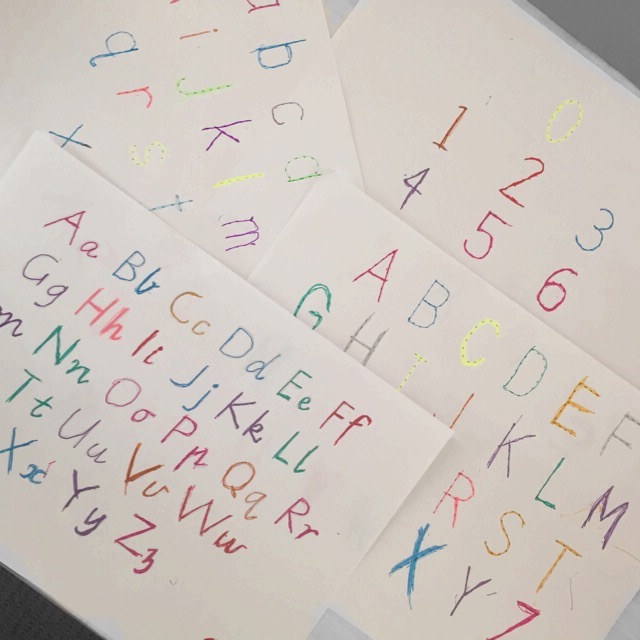 i b
q
r j c
k
x s l d
t m
1 0
4 2 3
5 6
A B C D E F
G H I J K L M
R S T
X Y Z
Aa Bb Cc Dd Ee Ff
Gg Hh Ii Jj Kk Ll
m Nn Oo Pp Qq Rr
Tt Uu Vv Ww
Xx Yy Zz